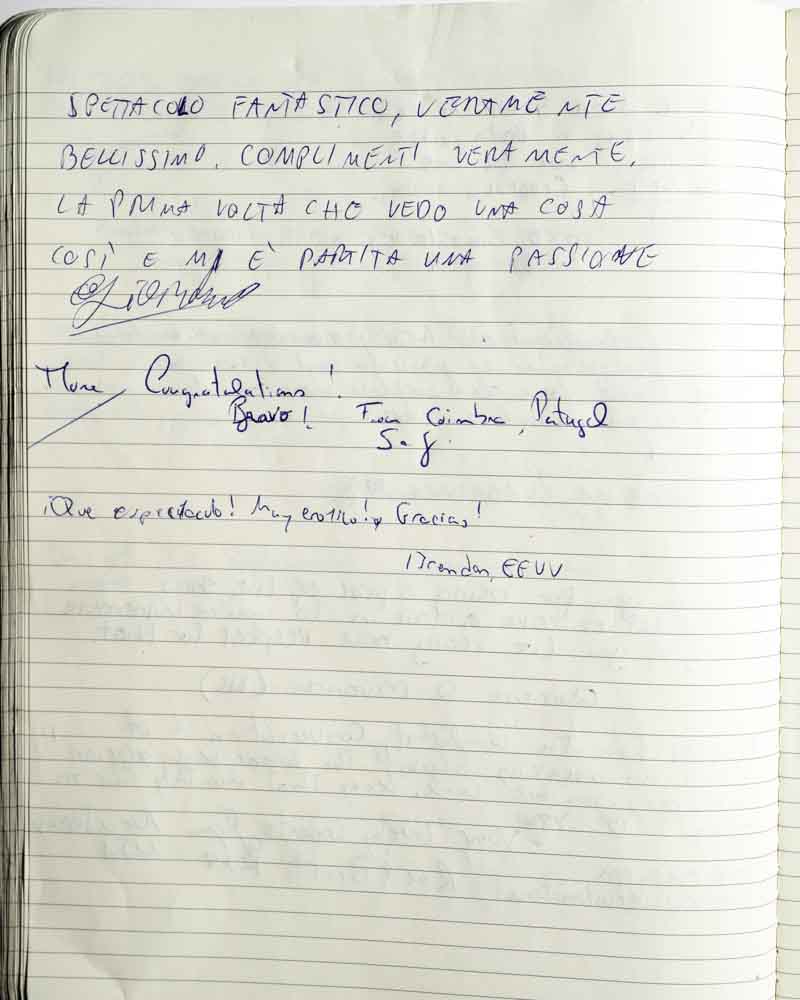 SPETTACOLO FANTASTICO, VERAMENTE
BELLISSIMO. COMPLIMENTI VERAMENTE.
LA PRIMA VOLTA CHE VEDO UNA COSA
COSÌ E MI È PARTITA UNA PASSIONE
Giordano
Congratulations!
Bravo! From Coimbra, Portugal
¡Que espectaculo! Muy erotico! Gracias!
Brendan, EEUU